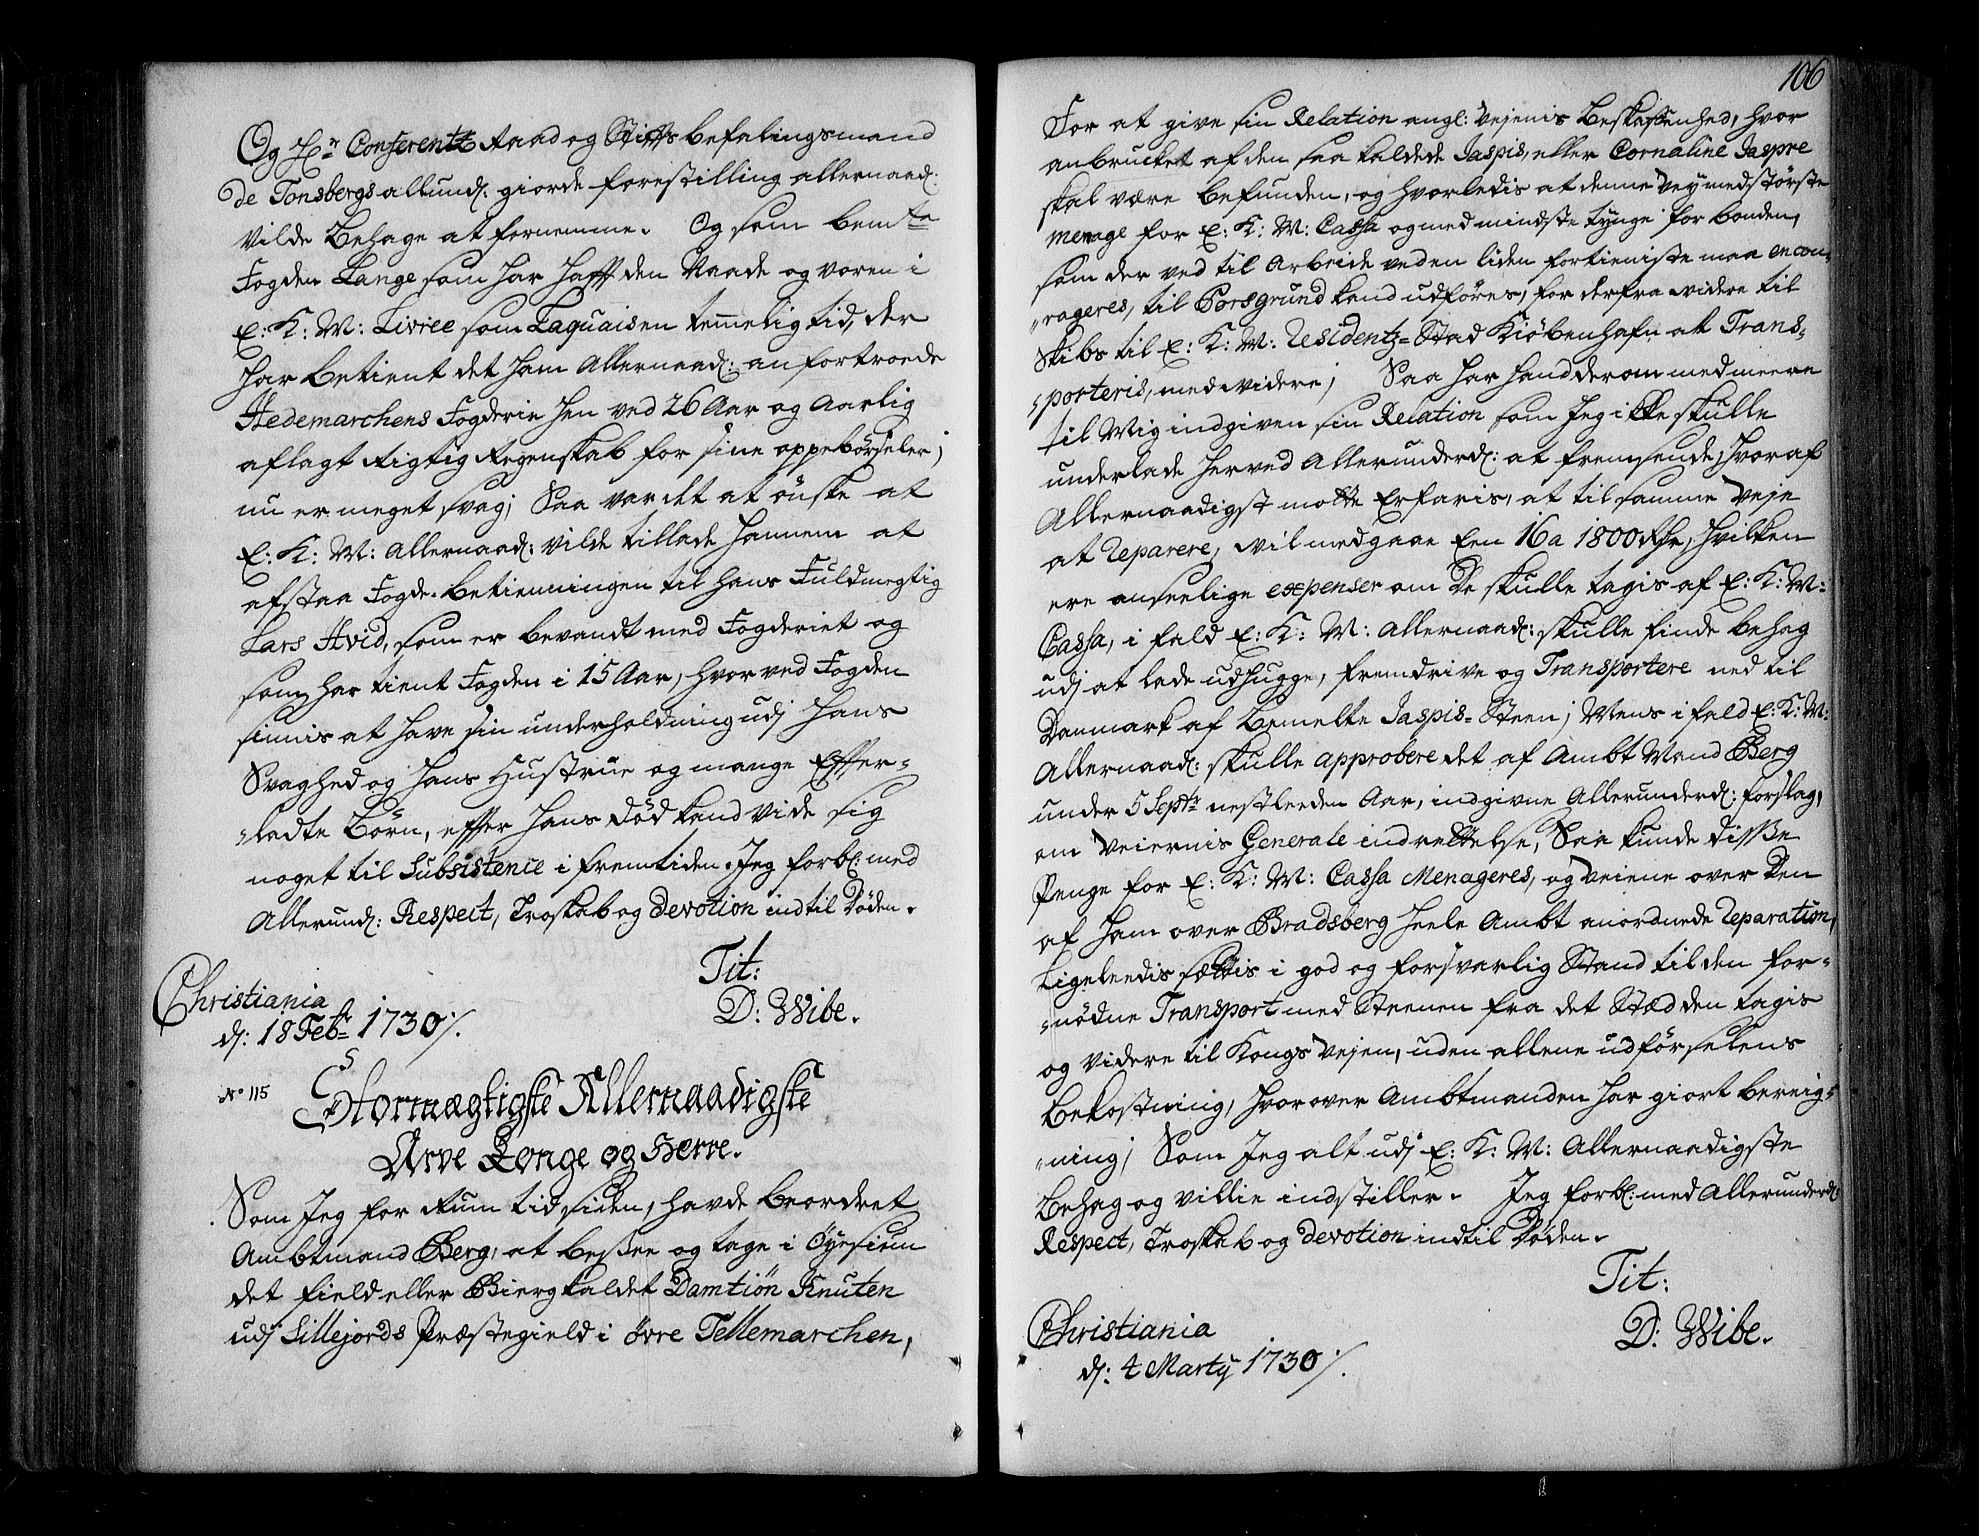 Og Hr: Conferentz Raad og Stiftsbefalingsmand
de Tonsbergs allund: giorde forestilling allernaad:
vilde Behage at fornemme. Og som bemte
Fogden Lange som har hafft den Naade og voren i
E: K: M: Livree som Laquais en temmelig tid, der
har betient det ham Allernaad: anfortroede
Hedemarchens Fogderie hen ved 26 Aar og Aarlig
aflagt Rigtig Regenskab for sine oppebørseler;
nu er meget svag; Saa var det at önske at
E: K: M: Allernaad: vilde tillade hannem at
afstaa Fogde-betienningen til hans Fuldmegtig
Lars Hvid, som er bevandt med Fogderiet og
som har tient Fogden i 15 Aar, hvorved Fogden
sinnis at have sin underholdning udj hans
Svaghed og hans Hustrue og mange Effter-
-ladte Börn, effter hans död kand vide sig
noget til Subsistence i fremtiden. Jeg forbl: med
Allerund: Respect, Troskab og devotion indtil Döden.
Tit:
Christiania
D: Wibe.
d: 18 Febr 1730/.
No 115
Stormægtigste Allernaadigste
Arve Konge og Herre.
Som Jeg for Rum tid siden, havde beordret
Ambtmand Berg, at besee og tage i Öyesiun
det field eller Bierg kaldet Damtiön Knuten
udj Sillejords Præstegield i övre Tellemarchen,
106
For at give sin Relation angl: Vejenis Beskaffenhed, hvor
anbrucket af den saa kaldede Jaspis, eller Cornaline Jaspre
skal være befunden, og hvorledis at denne Vey med störste
menage for E: K: M: Cassa og med mindste tynge for bonden,
som der ved til Arbeide ved en liden fortieniste maa encou-
-rageres, til Porsgrund kand udföres, for derfra widere til
Skibs til E: K: M: Residentz-Stad Kiöbenhafn at Trans-
-porteris, med widere; Saa har hand derom med meere
til Mig indgiven sin Relation som Jeg ikke skulle
underlade herved Allerunderd: at fremsende, hvoraf
Allernaadigst motte Erfaris, at til samme Veje
at Reparere, vil medgaae Een 16 a 1800 Rdr, hvilken
ere anseelige expenser om De skulle tagis af E: K: M:
Cassa, i fald E: K: M: Allernaad: skulle finde behag
udj at lade udhugge, fremdrive og Transportere ned til
Danmark af bemelte Jaspis-Steen; Mens i fald E: K: M:
Allernaad: skulle approbere det af Ambt Mand Berg
under 5 Septr nestleeden Aar, indgivne Allerunderd: forslag,
om Veiernis Generale indrettelse, Saa kunde disse
Penge for E: K: M: Cassa Menageres, og Veiene over den
af ham over Bradsberg heele Ambt anordnede Reparation,
Ligeleedis sættis i god og forsvarlig Stand til den for-
-nödne Transport med Steenen fra det Stæd den tagis
og videre til Kongs Vejen, uden allene udförselens
bekostning, hvorover Ambtmanden har giort bereig-
-ning; Som Jeg alt udj E: K: M: Allernaadigste
Behag og Villie indstiller. Jeg forbl: med Allerunderd:
Respect, Troskab og devotion indtil Döden.
Tit:
Christiania
D: Wibe.
d: 4 Marty 1730/.